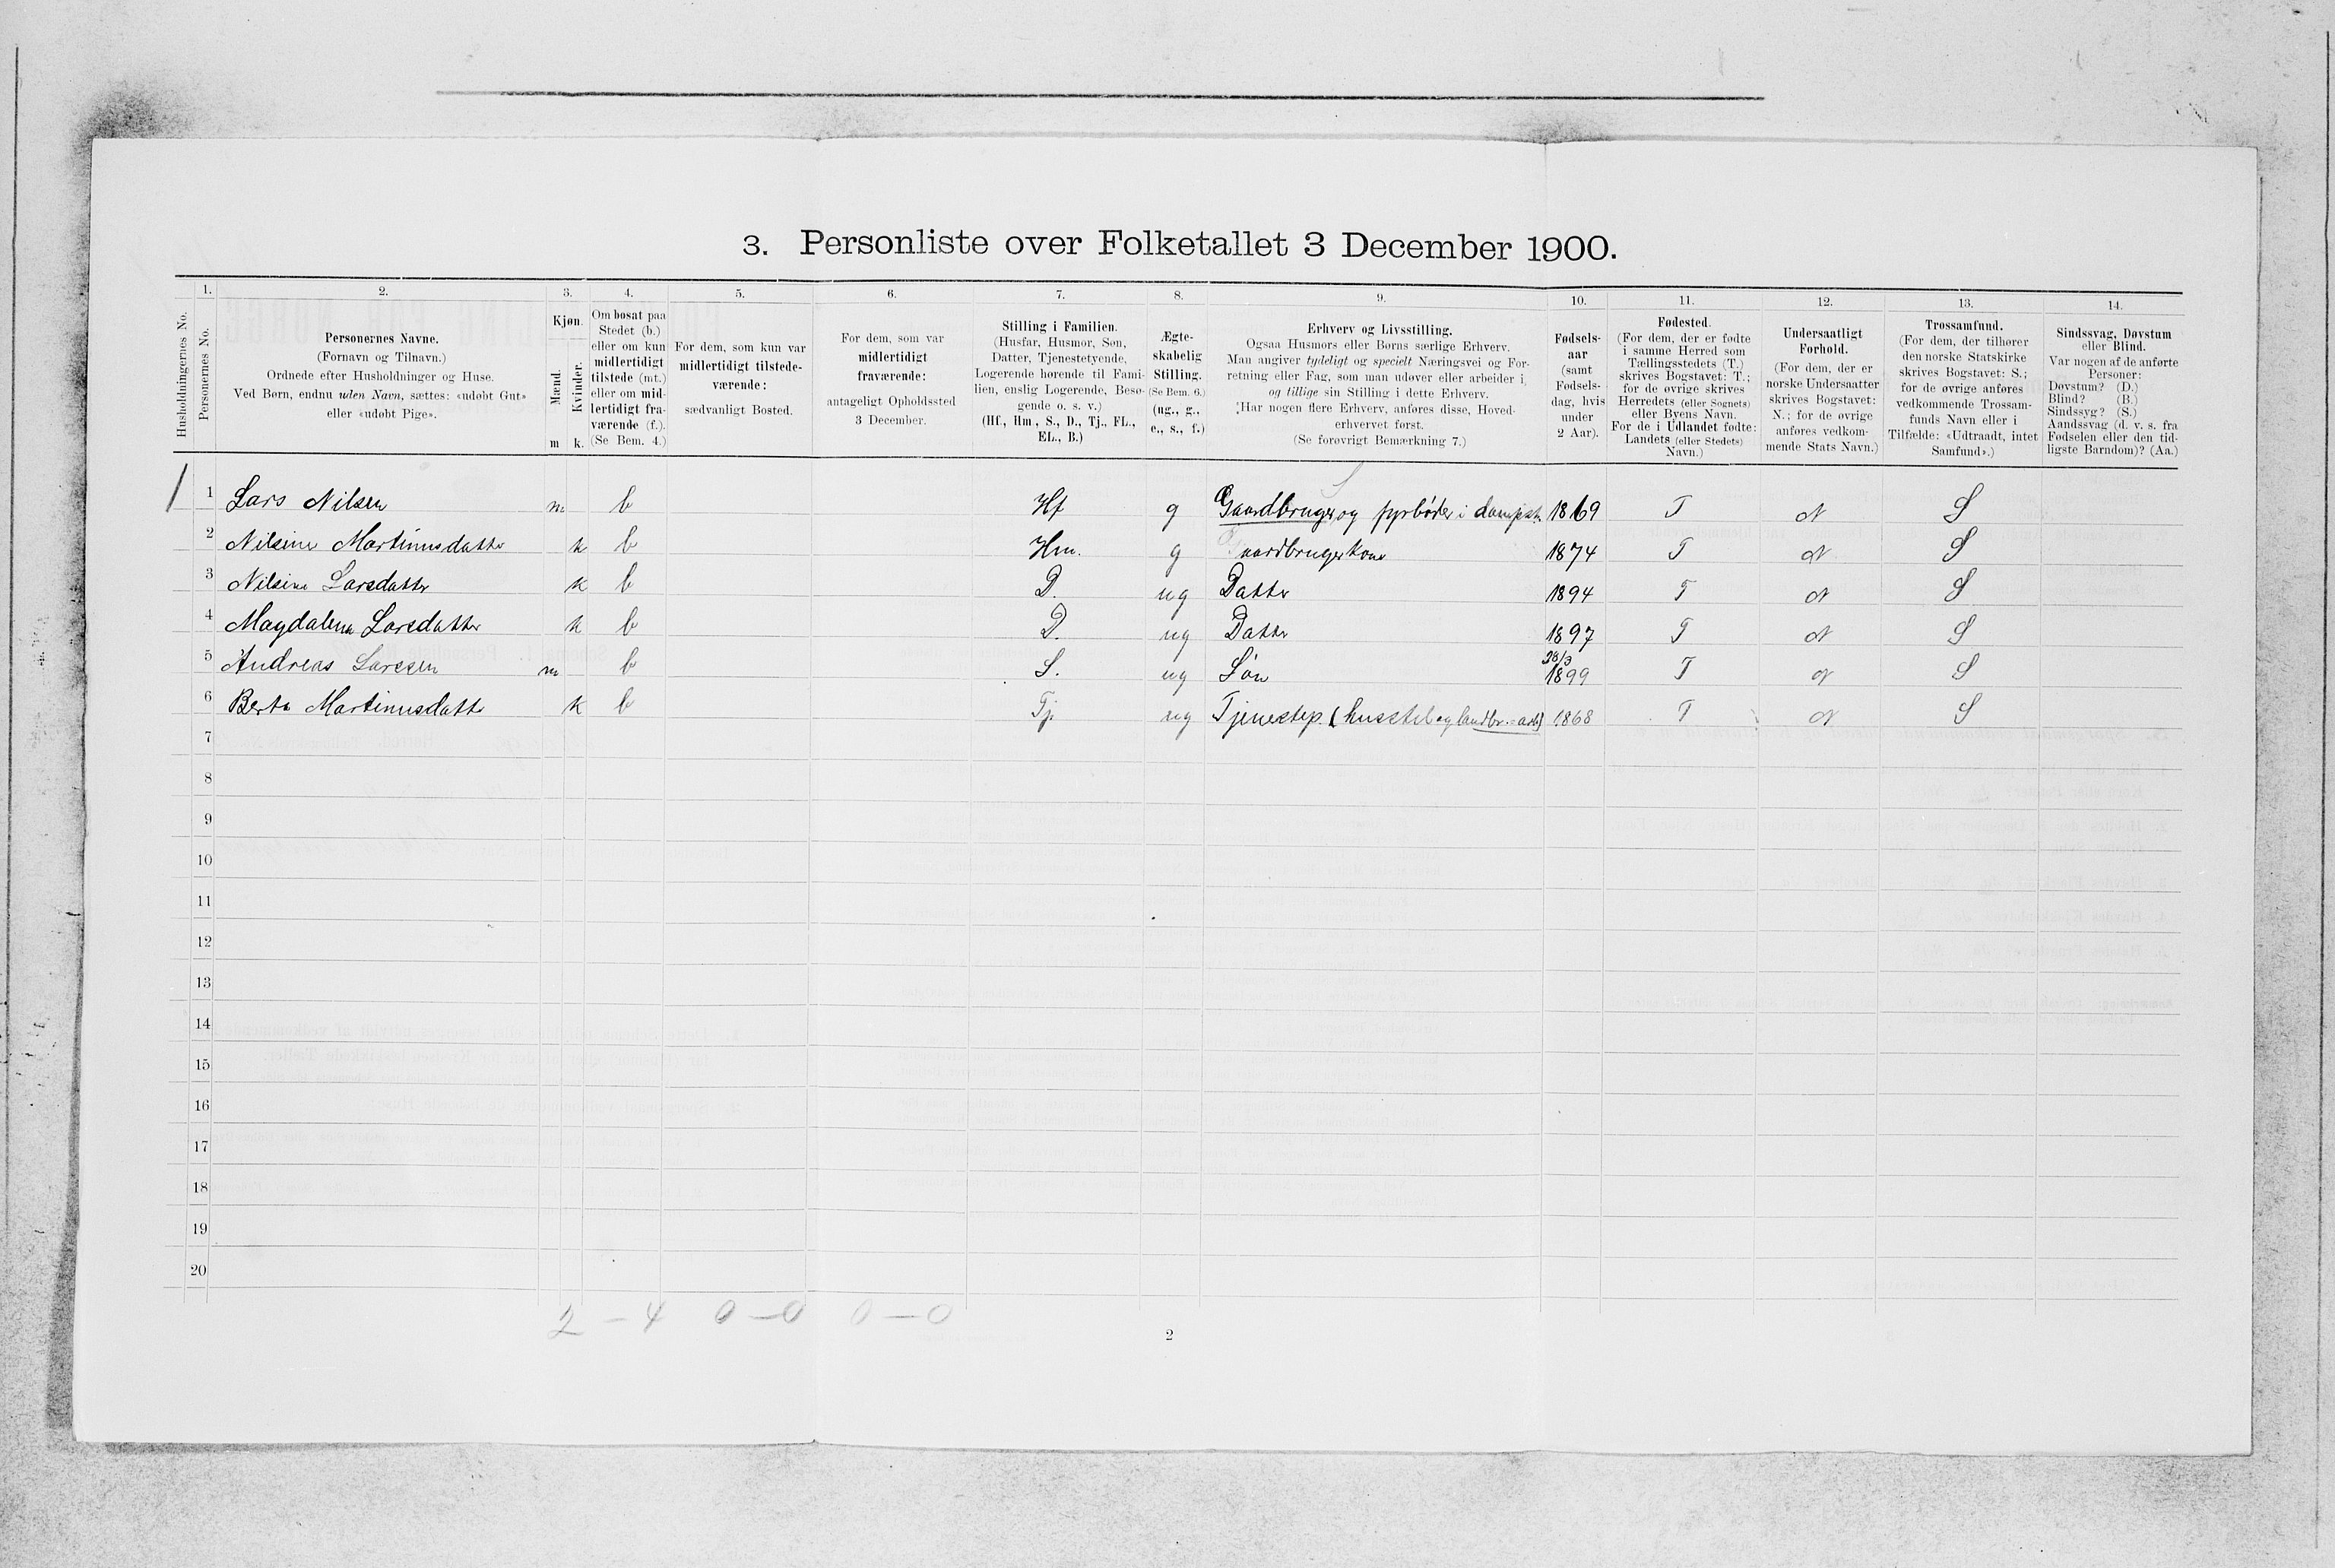 3. Personliste over Folketallet 3 December 1900.
1. 2. 3. 4. 5. 6. 7. 8. 9. 10. 11. 12. 13. 14.
Husholdningernes No.
Personernes No.
Personernes Navne.
(Fornavn og Tilnavn.)
Ordnede efter Husholdninger og Huse.
Ved Børn, endnu uden Navn, sættes: «udøbt Gut»
eller «udøbt Pige».
Kjøn.
Mænd.
Kvinder.
m k.
Om bosat paa
Stedet (b.)
eller om kun
midlertidigt
tilstede (mt.)
eller om mid-
lertidigt fra-
værende (f.).
(Se Bem. 4.)
For dem, som kun var
midlertidigt tilstede-
værende:
sædvanligt Bosted.
For dem, som var
midlertidigt
fraværende:
antageligt Opholdssted
3 December.
Stilling i Familien.
(Husfar, Husmor, Søn,
Datter, Tjenestetyende,
Logerende hørende til Fami-
lien, enslig Logerende, Besø-
gende o. s. v.)
(Hf., Hm., S., D., Tj., FL.,
EL., B.)
Ægte-
skabelig
Stilling.
(Se Bem. 6.)
(ug., g.,
e., s., f.)
Erhverv og Livsstilling.
Ogsaa Husmors eller Børns særlige Erhverv.
Man angiver tydeligt og specielt Næringsvei og For-
retning eller Fag, som man udøver eller arbeider i,
og tillige sin Stilling i dette Erhverv.
Har nogen flere Erhverv, anføres disse, Hoved-
erhvervet først.
(Se forøvrigt Bemærkning 7.)
Fødsels-
aar
(samt
Fødsels-
dag, hvis
under
2 Aar).
Fødested.
(For dem, der er fødte
i samme Herred som
Tællingsstedets (T.)
skrives Bogstavet: T.;
for de øvrige skrives
Herredets (eller Sognets)
eller Byens Navn.
For de i Udlandet fødte:
Landets (eller Stedets)
Navn.)
Undersaatligt
Forhold.
(For dem, der er
norske Undersaatter
skrives Bogstavet:
N.; for de øvrige
anføres vedkom-
mende Stats Navn.)
Trossamfund.
(For dem, der tilhører
den norske Statskirke
skrives Bogstavet: S.;
for de øvrige anføres
vedkommende Trossam-
funds Navn eller i
Tilfælde: «Udtraadt, intet
Samfund».)
Sindssvag, Døvstum
eller Blind.
Var nogen af de anførte
Personer:
Døvstum? (D.)
Blind? (B.)
Sindssyg? (S.)
Aandssvag (d. v. s. fra
Fødselen eller den tid-
ligste Barndom)? (Aa.)
1 1 Lars Nilsen m b Hf g Gaardbruger og fyrbøder i dampsk. 1869 T N S
2 Nilsine Martinusdatter k b Hm. g Gaardbrugerkone 1874 T N S
3 Nilsine Larsdatter k b D. ug Datter 1894 T N S
4 Magdalena Larsdatter k b D. ug Datter 1897 T N S
5 Andreas Larssen m b S. ug Søn 28/3 1899 T N S
6 Berta Martinusdatter k b Tj. ug Tjenestep. (husstel og landbr.-arb) 1868 T N S
7
8
9
10
11
12
13
14
15
16
17
18
19
20
2 – 4 0 – 0 0 – 0
2